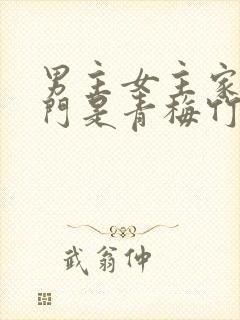 男主女主家
門是青梅竹
武翁仲